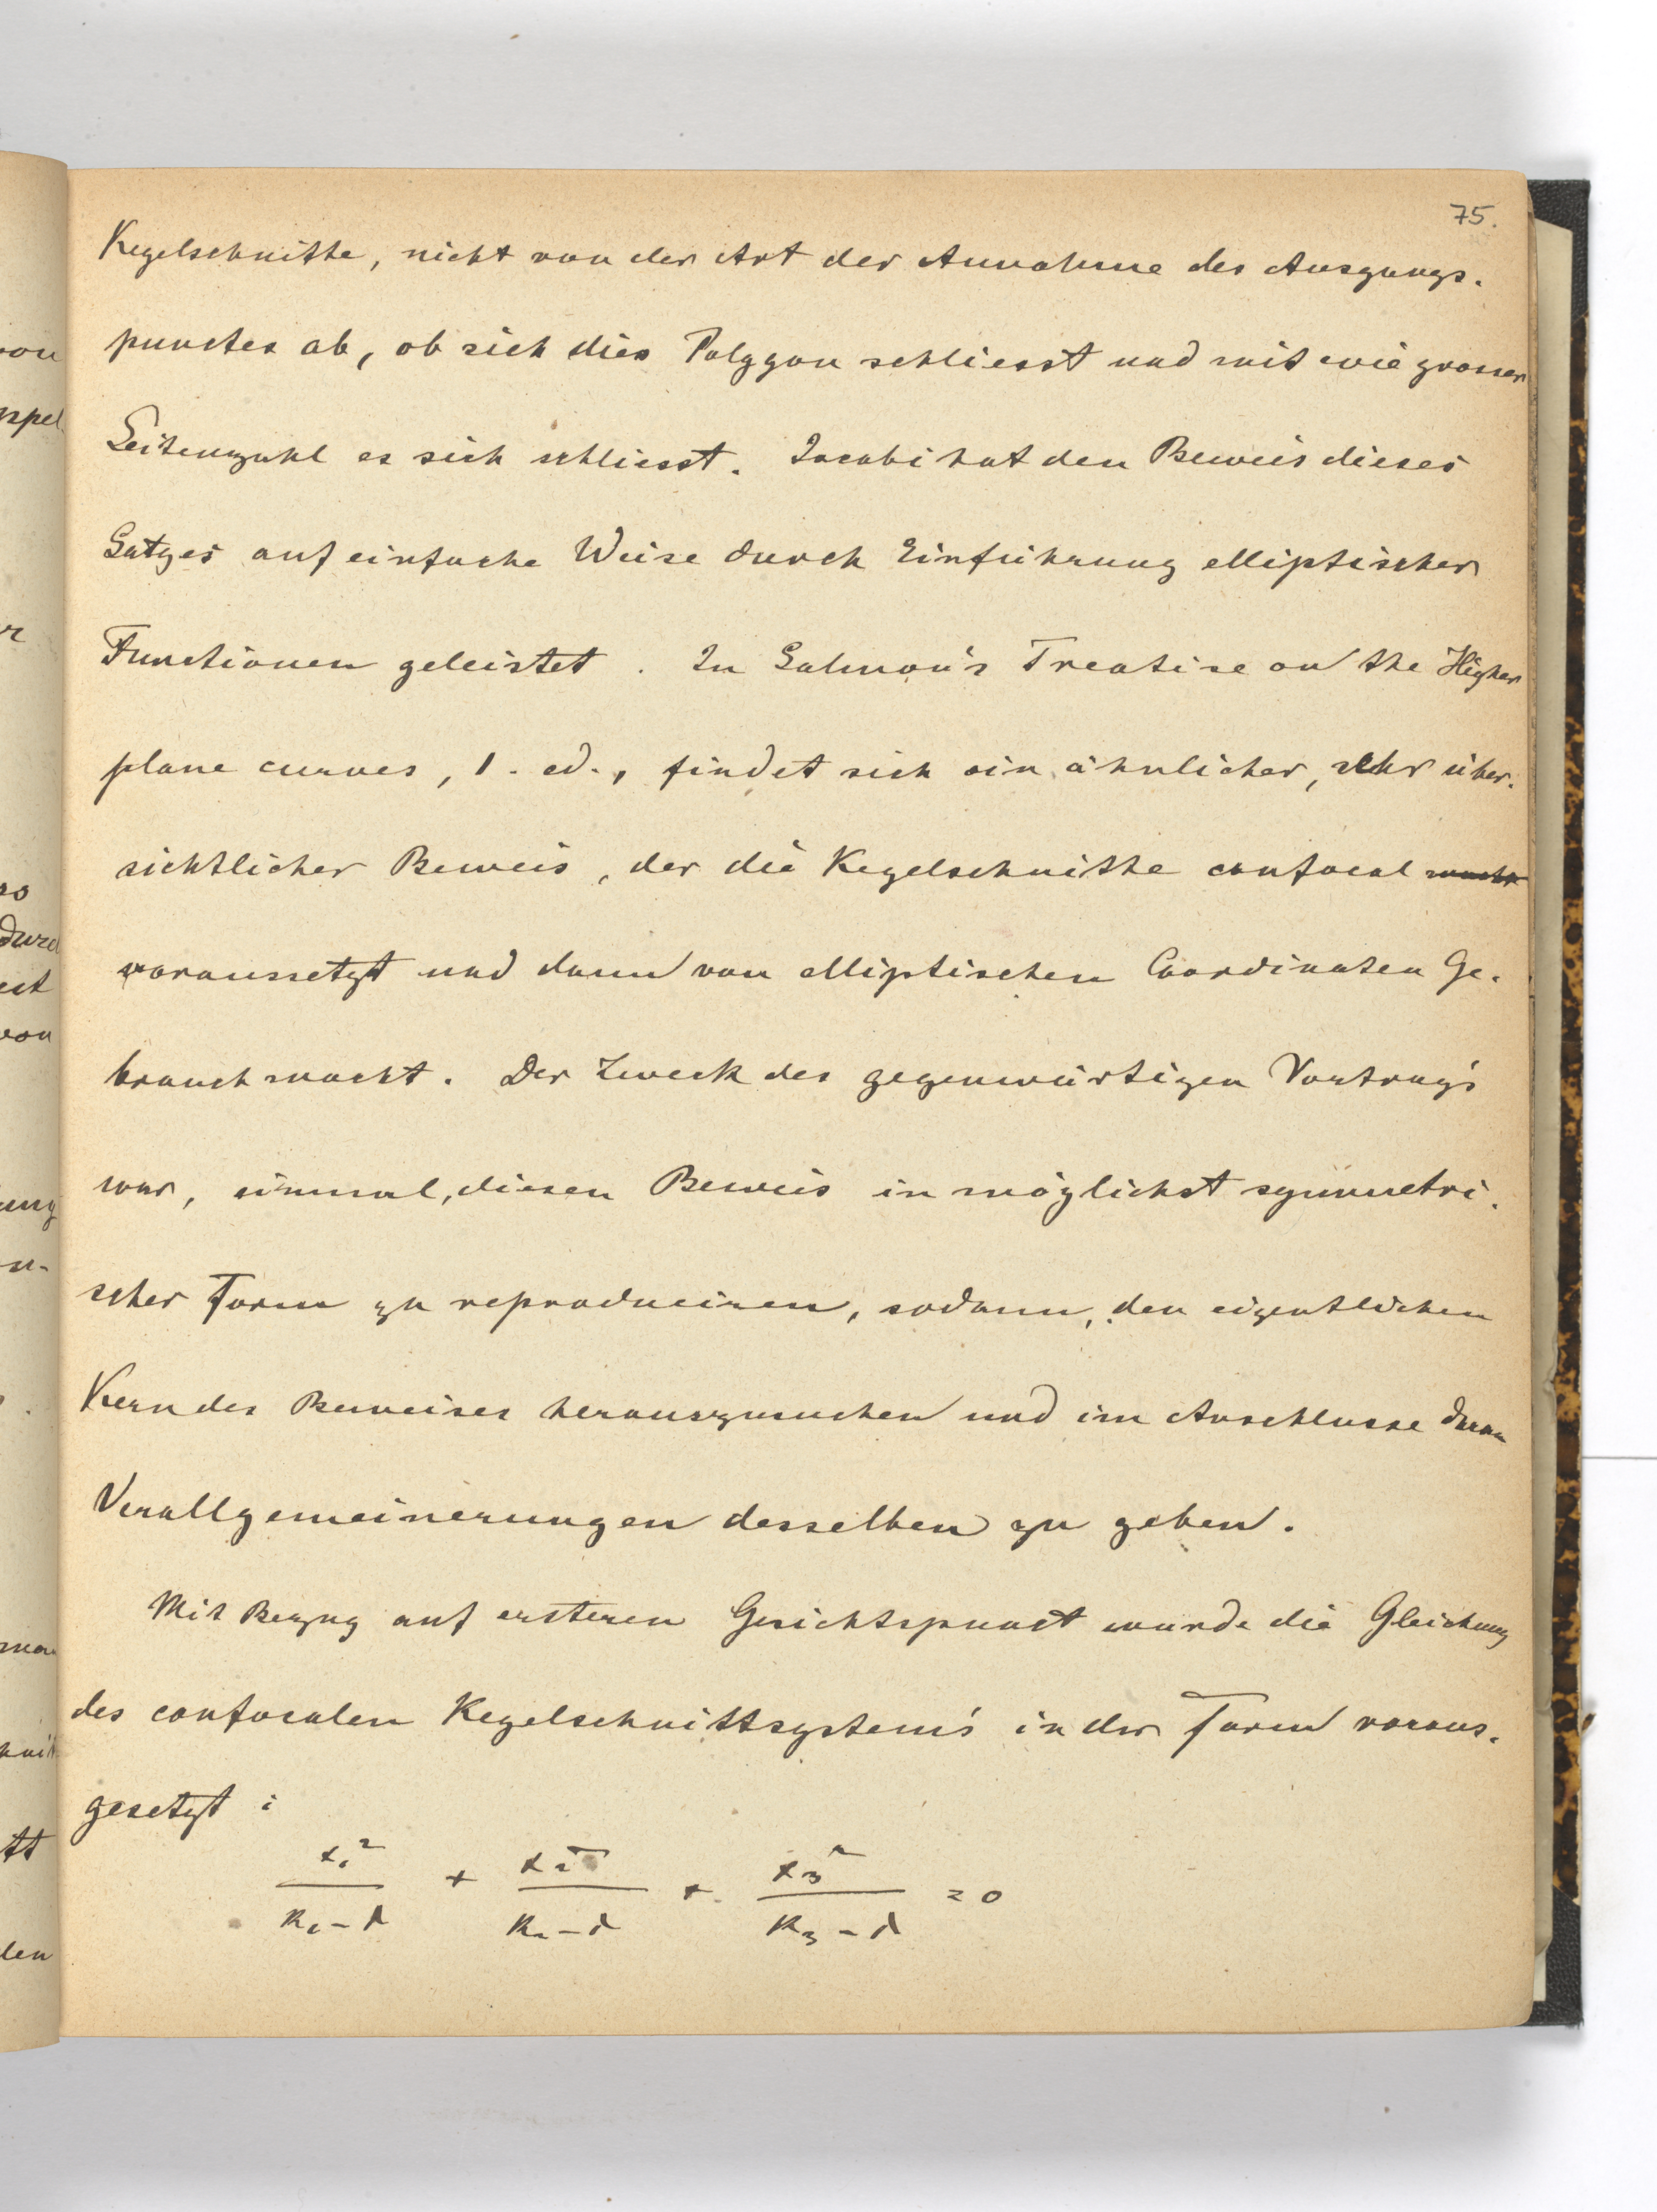 75.
Kegelschnitte, nicht von der Art der Annahme des Ausgangs-
punctes ab, ob sich dies Polygon schliesst und mit wie grosser
Seitenzahl es sich schliesst. Jacobi hat den Beweis dieses
Satzes auf einfache Weise durch Einführung elliptischer
Functionen geleistet. In Salmon's Treatise on the Higher
plane curves, 1. ed., findet sich ein ähnlicher, sehr über-
sichtlicher Beweis, der die Kegelschnitte confocal
voraussetzt und dann von elliptischen Coordinaten Ge-
brauch macht. Der Zweck des gegenwärtigen Vortrag's
war, einmal, diesen Beweis in möglichst symmetri-
scher Form zu reproduciren, sodann, den eigentlichen
Kern des Beweises herauszusuchen und im Anschlusse daran
Verallgemeinerungen desselben zu geben.
Mit Bezug auf ersteren Gesichtspunct wurde die Gleichung
des confocalen Kegelschnittsystem's in der Form voraus-
gesetzt:
x₁²/(k₁-λ) + x₂²/(k₂-λ) + x₃²/(k₃-λ) = 0
von
ppel
r
so
durch
est
von
ung
n-
tt
len